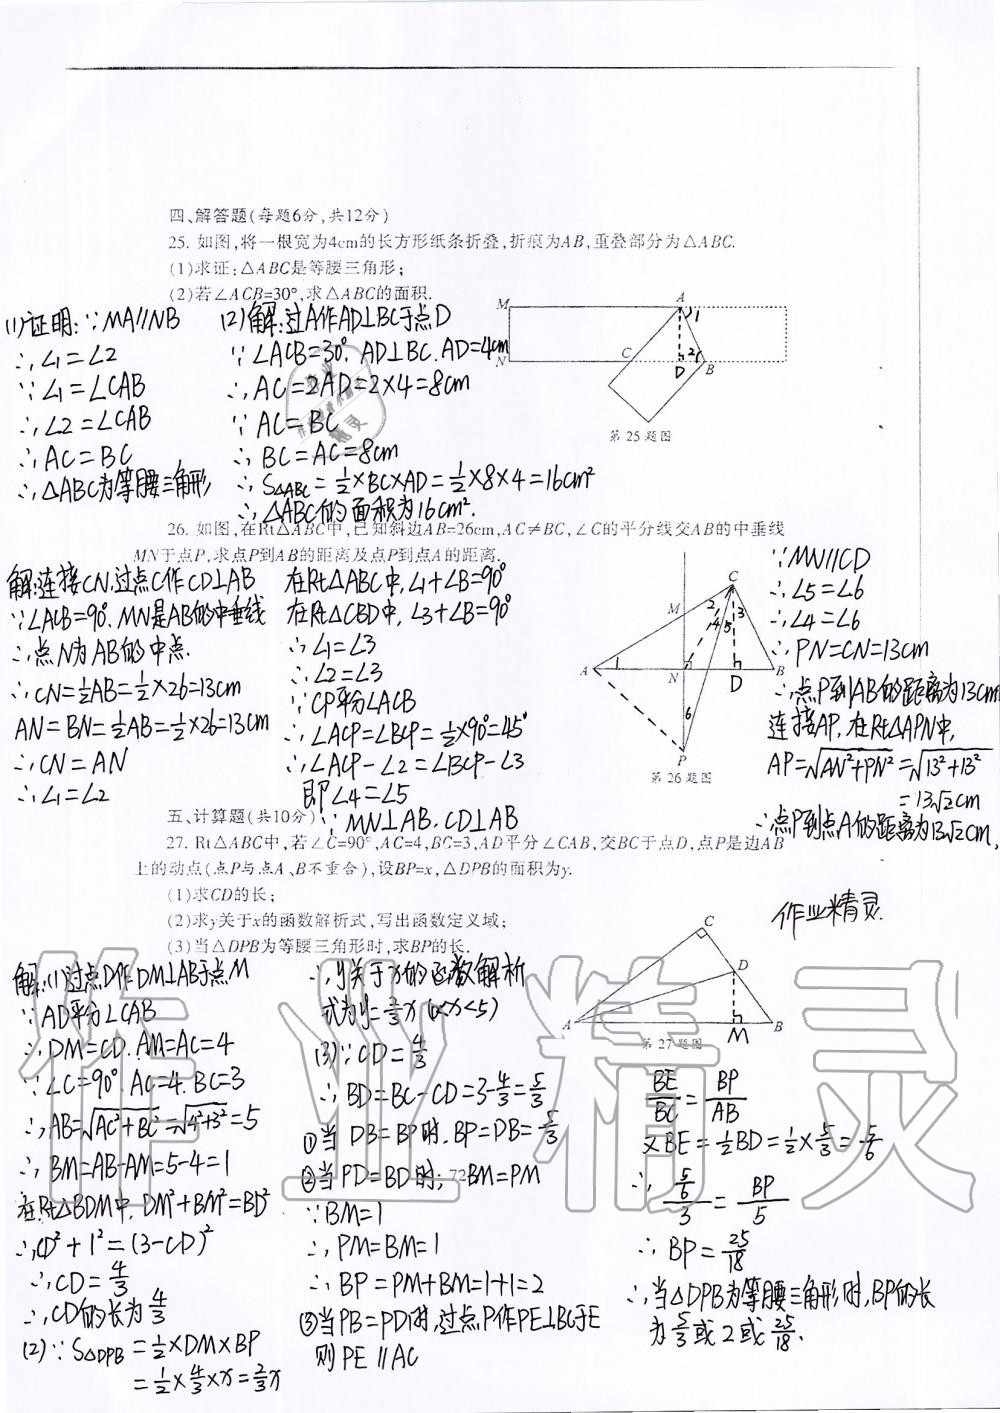 四、解答题(每题6分,共12分)
25. 如图,将一根宽为4cm的长方形纸条折叠,折痕为AB,重叠部分为△ABC.
(1)求证:△ABC是等腰三角形;
(2)若∠ACB=30°,求△ABC的面积.
(1)证明:∵MA∥NB
∴∠1=∠2
∵∠1=∠CAB
∴∠2=∠CAB
∴AC=BC
∴△ABC为等腰三角形
(2)解:过A作AD⊥BC于点D
∵∠ACB=30°. AD⊥BC. AD=4cm
∴AC=2AD=2×4=8cm
∵AC=BC
∴BC=AC=8cm
∴S△ABC=1/2×BC×AD=1/2×8×4=16cm²
∴△ABC的面积为16cm².
M
A
1
N
C
D
2
B
第25题图
26. 如图,在Rt△ABC中,已知斜边AB=26cm,AC≠BC,∠C的平分线交AB的中垂线
MN于点P,求点P到AB的距离及点P到点A的距离.
解:连接CN,过点C作CD⊥AB
∵∠ACB=90°. MN是AB的中垂线
∴点N为AB的中点.
∴CN=1/2AB=1/2×26=13cm
AN=BN=1/2AB=1/2×26=13cm
∴CN=AN
∴∠1=∠2
在Rt△ABC中,∠1+∠B=90°
在Rt△CBD中,∠3+∠B=90°
∴∠1=∠3
∴∠2=∠3
∵CP平分∠ACB
∴∠ACP=∠BCP=1/2×90°=45°
∴∠ACP-∠2=∠BCP-∠3
即∠4=∠5
∵MN⊥AB. CD⊥AB
C
M
2
3
4
5
A
1
N
D
B
6
P
第26题图
∵MN∥CD
∴∠5=∠6
∴∠4=∠6
∴PN=CN=13cm
∴点P到AB的距离为13cm
连接AP, 在Rt△APN中,
AP=√AN²+PN²=√13²+13²
=13√2cm
∴点P到点A的距离为13√2cm,
五、计算题(共10分)
27. Rt△ABC中,若∠C=90°,AC=4,BC=3,AD平分∠CAB,交BC于点D,点P是边AB
上的动点(点P与点A、B不重合),设BP=x,△DPB的面积为y.
(1)求CD的长;
(2)求y关于x的函数解析式,写出函数定义域;
(3)当△DPB为等腰三角形时,求BP的长.
作业精灵
C
D
A
M
B
第27题图
解:(1)过点D作DM⊥AB于点M
∵AD平分∠CAB
∴DM=CD. AM=AC=4
∵∠C=90°. AC=4. BC=3
∴AB=√AC²+BC²=√4²+3²=5
∴BM=AB-AM=5-4=1
在Rt△BDM中, DM²+BM²=BD²
∴CD²+1²=(3-CD)²
∴CD=4/3
∴CD的长为4/3
(2)∵S△DPB=1/2×DM×BP
=1/2×4/3×x=2/3x
∴y关于x的函数解析
式为y=2/3x(0<x<5)
(3)∵CD=4/3
∴BD=BC-CD=3-4/3=5/3
①当DB=BP时,BP=DB=5/3
②当PD=BD时,BM=PM
72
∵BM=1
∴PM=BM=1
∴BP=PM+BM=1+1=2
③当PB=PD时,过点P作PE⊥BC于E
则PE∥AC
BE/BC=BP/AB
又BE=1/2BD=1/2×5/3=5/6
∴5/6/3=BP/5
∴BP=25/18
∴当△DPB为等腰三角形时,BP的长
为5/3或2或25/18.
作业精灵